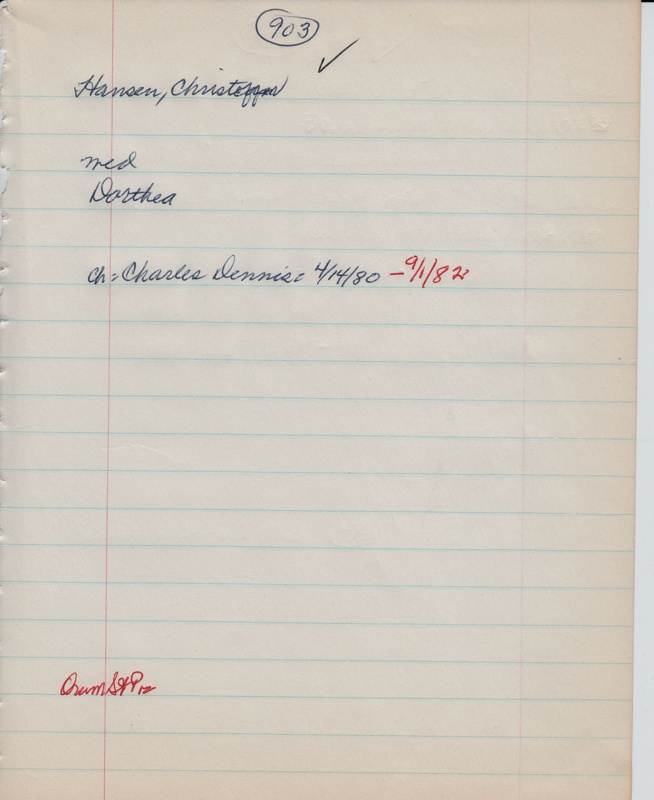 903 ✓
Hansen, Christoffer
med
Dorthea
ch: Charles Dennis: 4/14/80 - 9/1/82
Orum